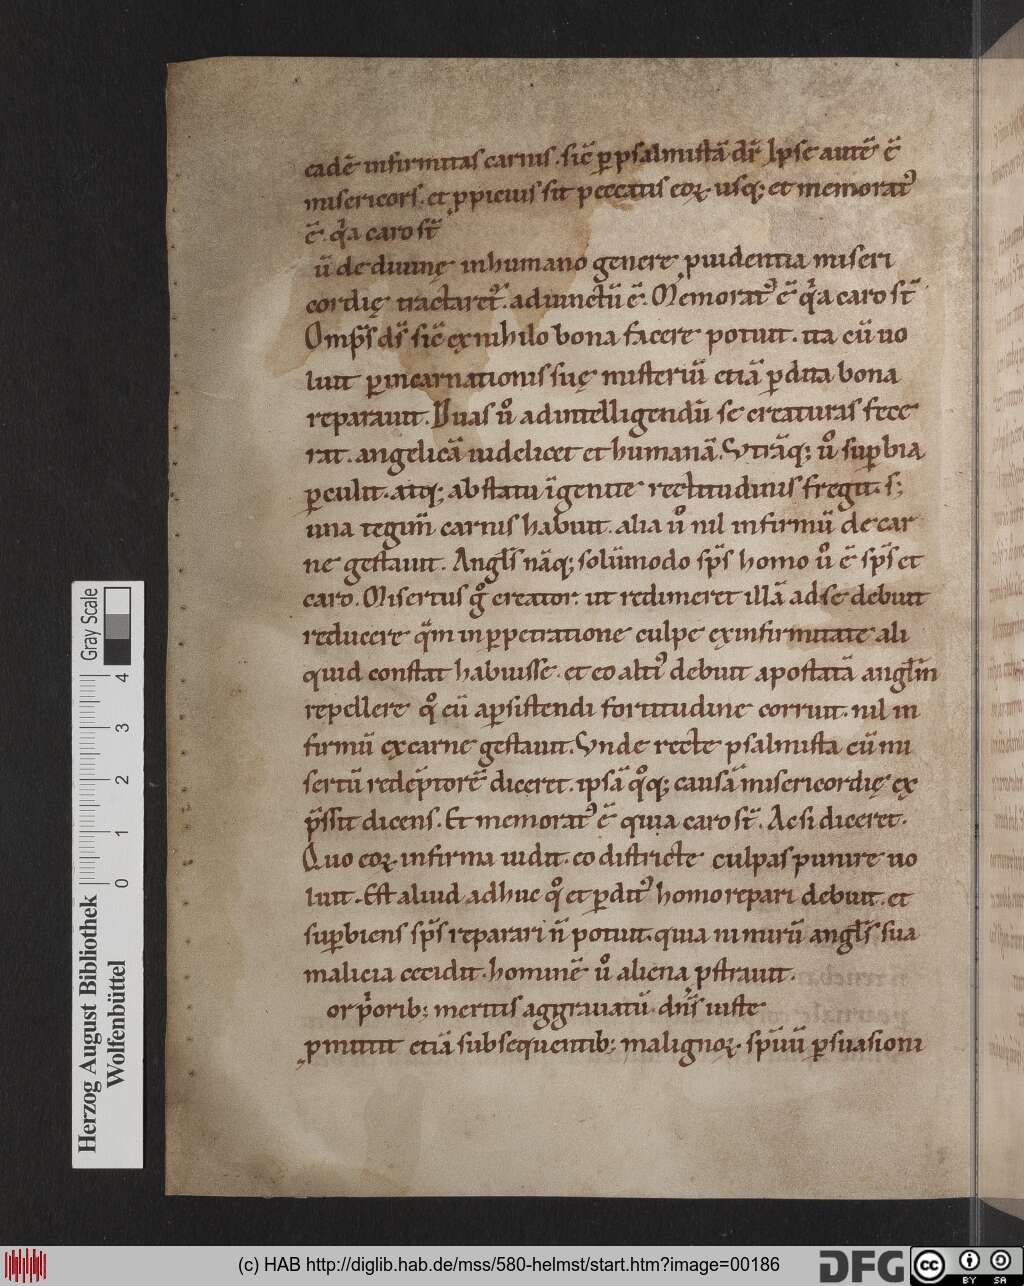 cadē infirmitas carnis. sic̄ ꝑ psalmistā dr̄. Ipse autē ē
misericors. et ꝓpicius sit peccatis eoꝝ. usq; et memorat᾽
ē. q̇a caro st̄
ū de diuinę in humano genere ꝓuidentia miseri
cordię tractaret᾽. adiunctū ē. Memorat᾽ ē q̇a caro st̄.
Omp̄s ds̄ sic̄ ex nihilo bona facere potuit. ita cū uo
luit ꝑ incarnationis suę misteriū etiā ꝑdita bona
reparauit. Duas ů ad intelligendū se creaturas fece
rat. angelicā uidelicet et humanā. Vtrāq; ů suꝑbia
ꝑculit. atq; ab statu īgenite rectitudinis fregit. s;
una tegim̄ carnis habuit. alia ů nil infirmū de car
ne gestauit. Angl̄s nāq; solūmodo sp̄s homo ů ē sp̄s et
caro. Misertus g̊ creator. ut redimeret illā ad se debuit
reducere q̄m in ꝑpetratione culpe ex infirmitate ali
quid constat habuisse. et eo alti᾽ debuit apostatā angl̄m
repellere q̊ cū a ꝑsistendi fortitudine corruit. nil in
firmū ex carne gestauit. Vnde recte psalmista cū mi
sertū redēptorē diceret. ipsā q̊q; causā misericordię ex
p̄ssit dicens. Et memorat᾽ ē quia caro st̄. Ac si diceret.
Quo eoꝝ infirma uidit. eo districte culpas punire no
luit. Est aliud adhuc q̊ et ꝑdit᾽ homo repari debuit. et
suꝑbiens sp̄s reparari n̄ potuit. quia nimirū angl̄s sua
malicia cecidit. hominē ů aliena pstrauit.
or p̄orib; meritis aggrauatū. dn̄s iuste
ꝓmittit etiā subsequentib; malignoꝝ. spūū ꝑsuasioni
Herzog August Bibliothek
Wolfenbüttel
Gray Scale
0 1 2 3 4
(c) HAB http://diglib.hab.de/mss/580-helmst/start.htm?image=00186
DFG
cc
BY SA